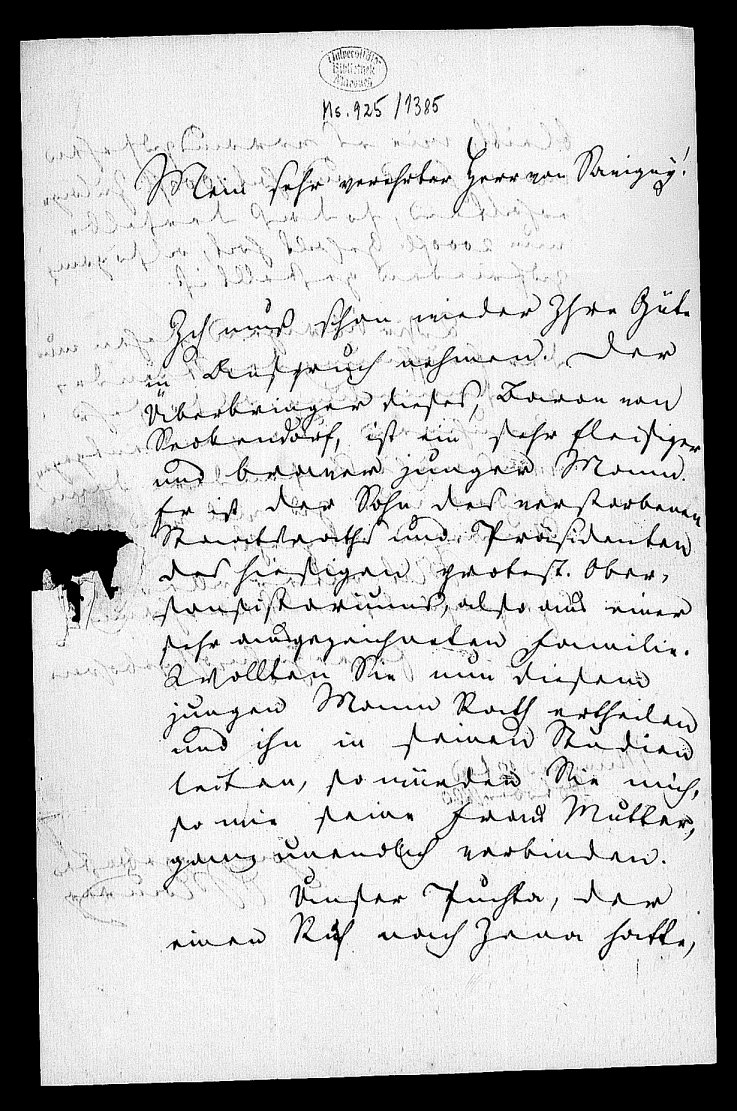 Universitäts
Bibliothek
Marburg
Ms. 925/1385
Mein sehr verehrter Herr von Savigny!
Ich muß schon wieder Ihre Güte
in Anspruch nehmen. Der
Überbringer dieses, Baron von
Seckendorf, ist ein sehr fleißiger
und braver junger Mann.
Er ist der Sohn des verstorbenen
Staatsraths und Präsidenten
des hiesigen protest. Ober-
konsistoriums, also aus einer
sehr ausgezeichneten Familie.
Wollten Sie nun diesem
jungen Mann Rath ertheilen
und ihn in seinen Studien
leiten, so würden Sie mich,
so wie seine Frau Mutter,
ganz unendlich verbinden.
Unser Puchta, der
einen Ruf nach Jena hatte,